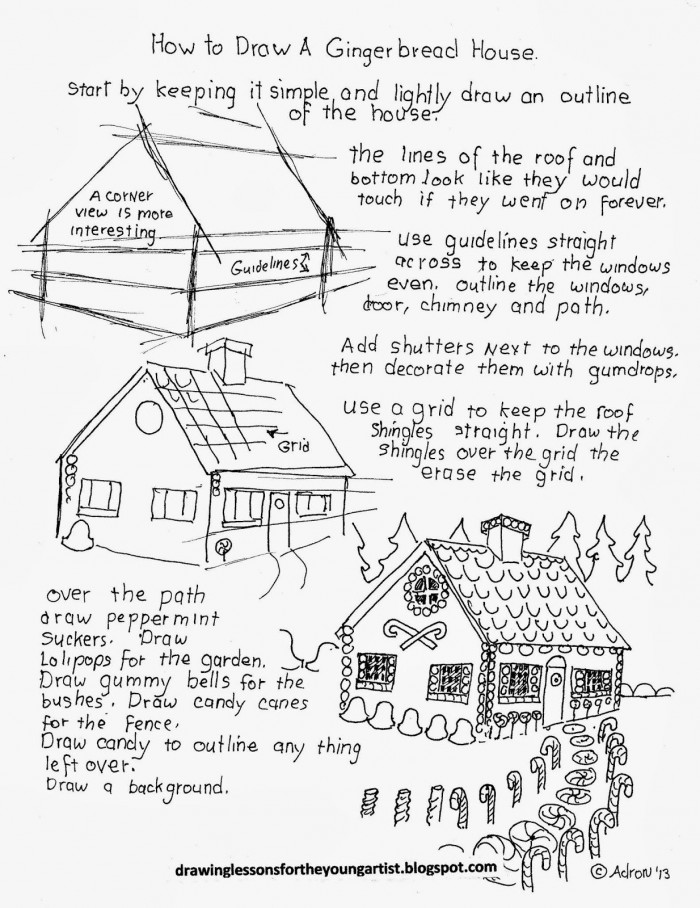 How to Draw A Gingerbread House.
Start by keeping it simple and lightly draw an outline
of the house.
the lines of the roof and
bottom look like they would
touch if they went on forever.
A corner
view is more
interesting
Guidelines
use guidelines straight
across to keep the windows
even. outline the windows,
door, chimney and path.
Add shutters Next to the windows.
then decorate them with gumdrops.
use a grid to keep the roof
shingles straight. Draw the
shingles over the grid the
erase the grid.
Grid
over the path
draw peppermint
suckers. Draw
Lolipops for the garden.
Draw gummy bells for the
bushes. Draw candy canes
for the fence.
Draw candy to outline any thing
left over.
Draw a background.
drawinglessonsfortheyoungartist.blogspot.com
© Adron '13